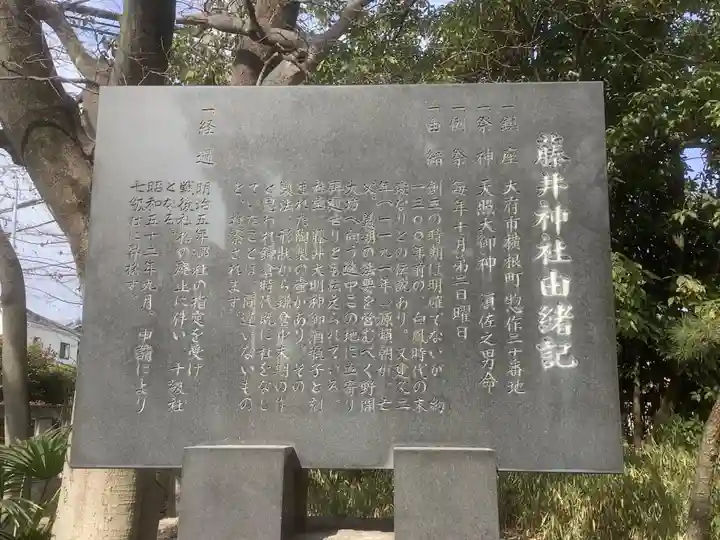 藤井神社由緒記
一鎮座 大府市横根町惣作三十番地
一祭神 天照大御神 須佐之男命
一例祭 毎年十月第二日曜日
一由緒 創立の時期は明確でないが、約
一三〇〇年前の、白鳳時代の末
頃なりとの伝説あり。又建久二
年(一一九一年)源頼朝が、亡
父、義朝の法要を営むべく野間
大坊へ向う途中この地に立寄り
再建せりとも伝えられている。
社宝、藤井大明神御酒瓶子と刻
まれた陶製の壺があり、その
製法、形状から鎌倉中末期の作
と見られ鎌倉時代既に社をなし
ていたことは、間違いないもの
と、推察されます。
一経過 明治五年郷社の指定を受け
戦後社格の廃止に伴い、十級社
となる。
昭和五十二年九月、申請により
七級社に昇格す。